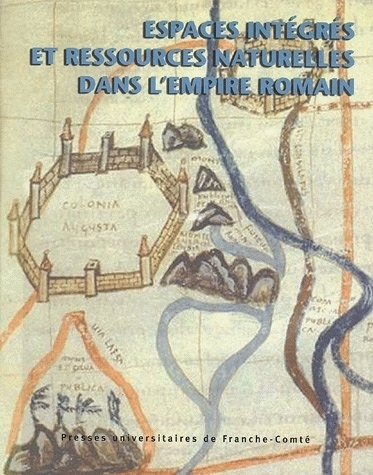 ESPACES INTÉGRÉS
ET RESSOURCES NATURELLES
DANS L'EMPIRE ROMAIN
COLONIA
AUGUSTA
VIA LAESA
PUBLICA
PUBLICA
Presses universitaires de Franche-Comté